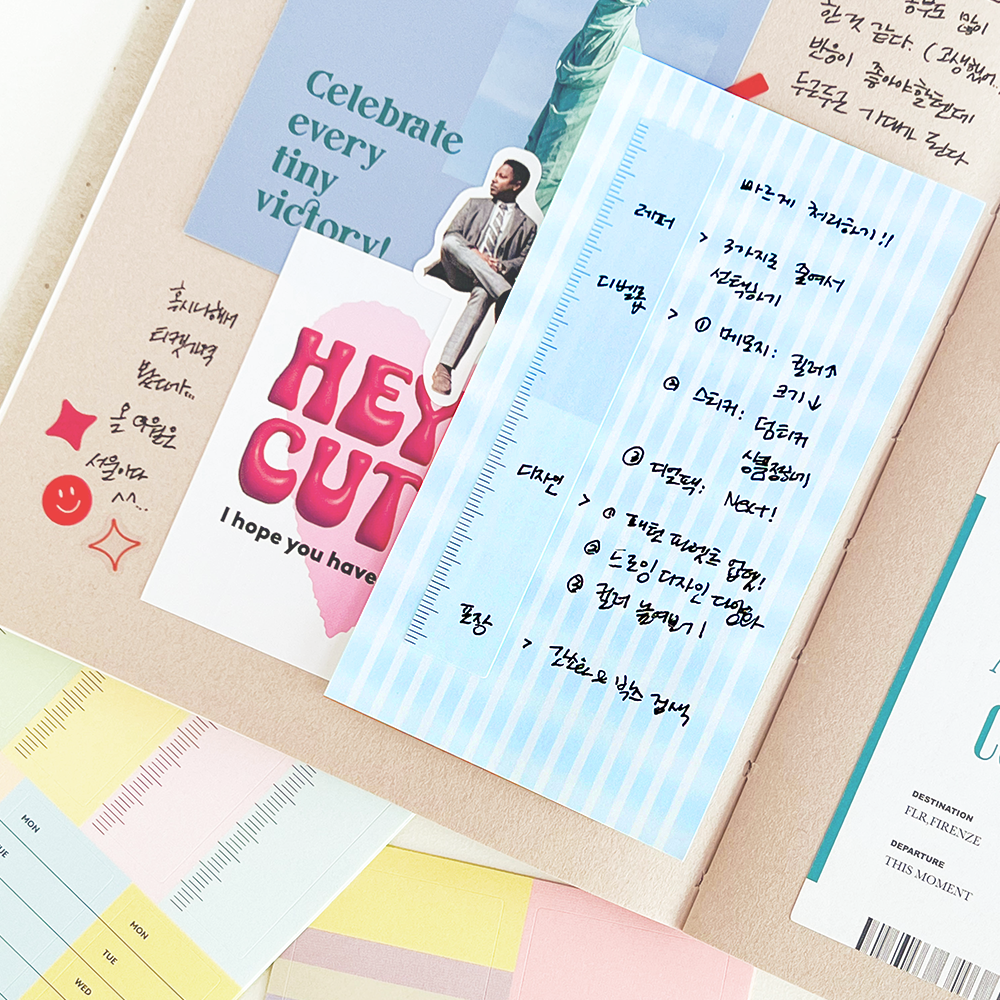 Celebrate
every
tiny
victory!
공부도 많이
한 것 같다. (고생했어..
반응이 좋아야할텐데
두근두근 기대가 된다
혹시나해서
티켓가격
봤는데가...
올 여름은
서울이다
^^...
HEY
CUT
I hope you have
빠르게 처리하기!!
레퍼 > 3가지로 줄여서
선택하기
디벨롭 > ① 메모지: 컬러↑
크기↓
② 스티커: 덤티커
상품정하기
③ 디얼팩: Next!
디자인 > ① 패턴 피벗트 업뎃!
② 드로잉 디자인 다양화
③ 컬러 늘려보기
포장 > 간소화 & 박스 검색
MON
TUE
MON
TUE
WED
DESTINATION
FLR, FIRENZE
DEPARTURE
THIS MOMENT